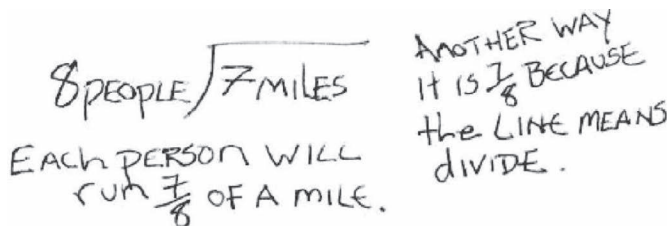 8 PEOPLE ⟌ 7 MILES
EACh PERSON WILL
run 7/8 OF A MILE.
ANOTHER WAY
It IS 7/8 BECAUSE
the LINE MEANS
dIVIDE.